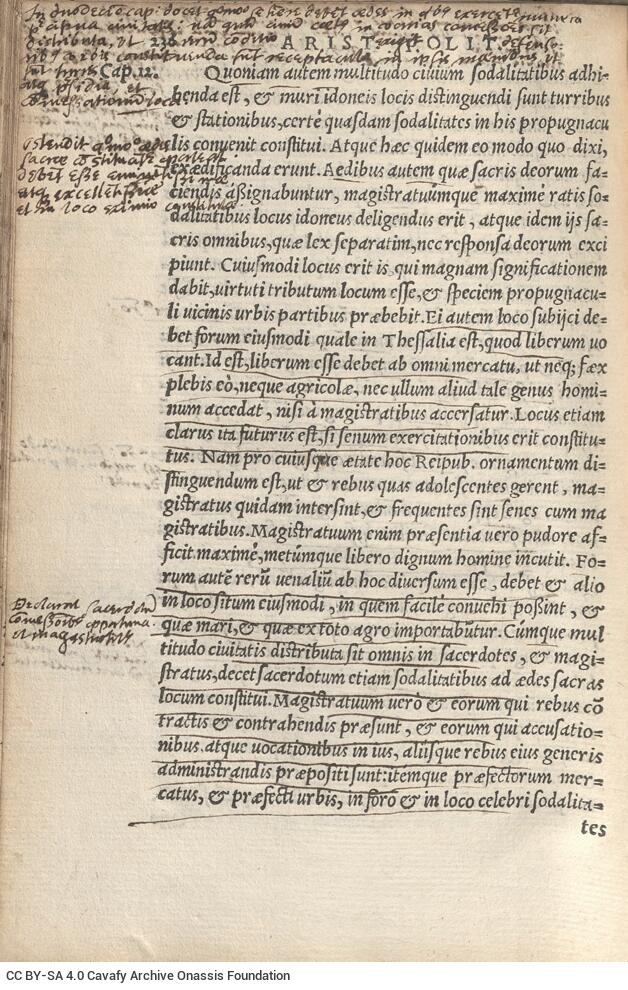 236 ARIST. POLIT.
Cap. 12.
Quoniam autem multitudo ciuium sodalitatibus adhi-
benda est, & muri idoneis locis distinguendi sunt turribus
& stationibus, certe quasdam sodalitates in his propugnacu
lis conuenit constitui. Atque hæc quidem eo modo quo dixi,
exædificanda erunt. Aedibus autem quæ sacris deorum fa-
ciendis aßignabuntur, magistratuúmque maximè ratis so-
dalitatibus locus idoneus deligendus erit, atque idem ijs sa-
cris omnibus, quæ lex separatim, nec responsa deorum exci
piunt. Cuiusmodi locus erit is, qui magnam significationem
dabit, uirtuti tributum locum esse, & speciem propugnacu-
li uicinis urbis partibus præbebit. Ei autem loco subijci de-
bet forum eiusmodi quale in Thessalia est, quod liberum uo
cant. Id est, liberum esse debet ab omni mercatu, ut neq; fæx
plebis eò, neque agricolæ, nec ullum aliud tale genus homi-
num accedat, nisi à magistratibus accersatur. Locus etiam
clarus ita futurus est, si senum exercitationibus erit constitu-
tus. Nam pro cuiusque ætate hoc Reipub. ornamentum di-
stinguendum est, ut & rebus quas adolescentes gerent, ma-
gistratus quidam intersint, & frequentes sint senes cum ma
gistratibus. Magistratuum enim præsentia uero pudore af-
ficit maximè, metúmque libero dignum homine incutit. Fo-
rum autẽ rerũ uenaliũ ab hoc diuersum esse, debet & alio
in loco situm eiusmodi, in quem facilè conuehi poßint, &
quæ mari, & quæ ex toto agro importabũtur. Cúmque mul
titudo ciuitatis distributa sit omnis in sacerdotes, & magi-
stratus, decet sacerdotum etiam sodalitatibus ad ædes sacras
locum constitui. Magistratuum uerò & eorum qui rebus cõ
tractis & contrahendis præsunt, & eorum qui accusatio-
nibus, atque uocationibus in ius, aliísque rebus eius generis
administrandis præpositi sunt: itemque præfectorum mer-
catus, & præfecti urbis, in foro & in loco celebri sodalita-
tes
CC BY-SA 4.0 Cavafy Archive Onassis Foundation